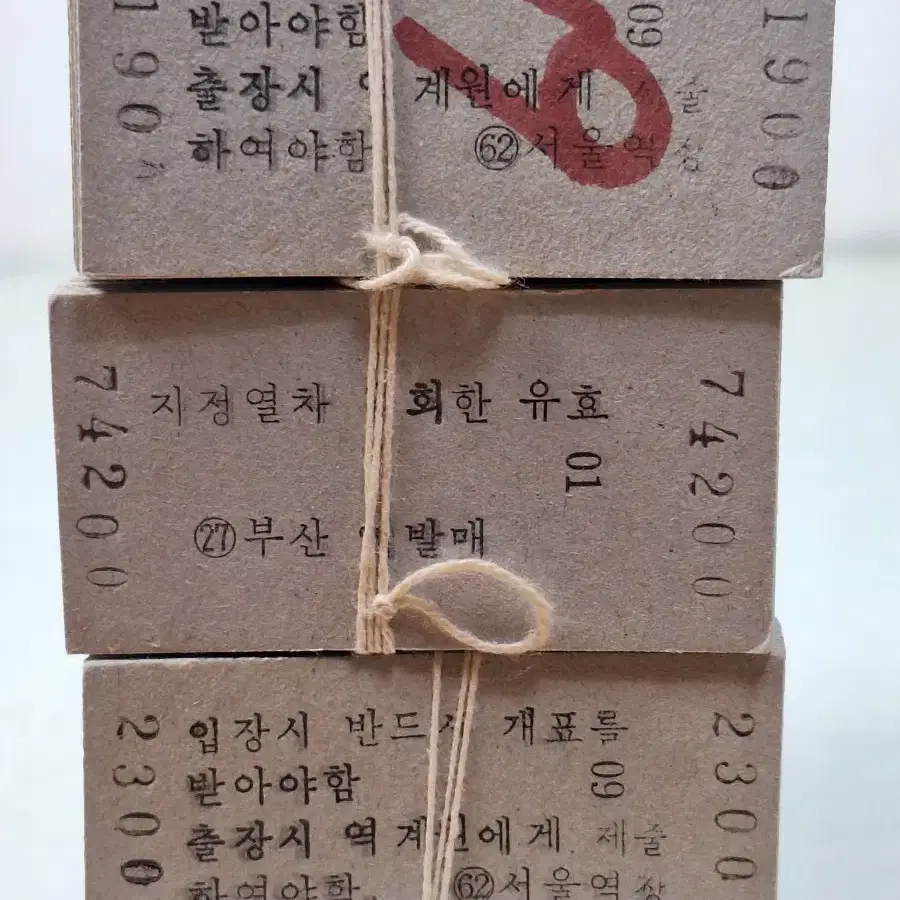 1900
받아야함
09
출장시 계원에게 제출
하여야함 ㊷서울역
1900
74200
지정열차 회한 유효
01
㉗부산 발매
74200
2300
입장시 반드시 개표를
받아야함
09
출장시 역계원에게 제출
하여야함 서울역
2300